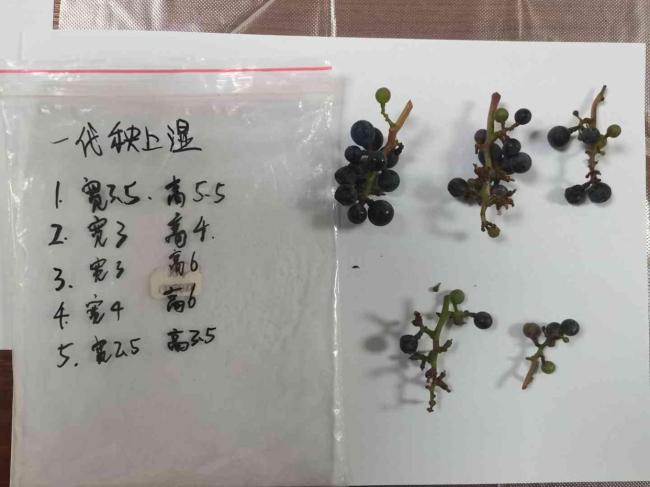 一代秧上湿
1. 宽3.5. 高5.5
2. 宽3 高4.
3. 宽3 高6
4. 宽4 高6
5. 宽2.5 高3.5